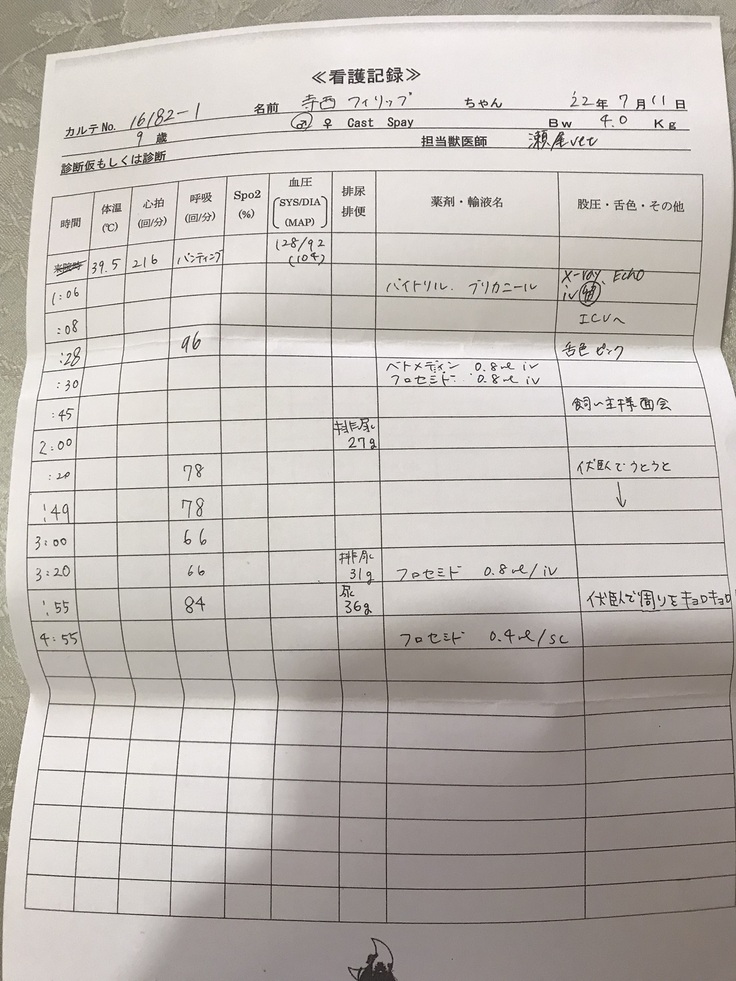 ≪看護記録≫
カルテNo. 16182-1 名前 寺西 フィリップ ちゃん '22年 7月 11日
9 歳 ♂ ♀ Cast Spay Bw 4.0 Kg
診断仮もしくは診断 担当獣医師 瀬尾vet
時間 体温(℃) 心拍(回/分) 呼吸(回/分) Spo2(%) 血圧[SYS/DIA(MAP)] 排尿排便 薬剤・輸液名 股圧・舌色・その他
来院時 39.5 216 パンティング 128/92 (104)
1:06 バイトリル. ブリカニール X-ray, Echo iv
:08 ICUへ
:28 96 舌色ピンク
:30 ベトメディン 0.8ml iv フロセミド 0.8ml iv
:45 飼い主様面会
2:00 排尿 27g
:20 78 伏臥でうとうと
:49 78 ↓
3:00 66
3:20 66 排尿 31g フロセミド 0.8ml/iv
:55 84 尿 36g 伏臥で周りをキョロキョロ
4:55 フロセミド 0.4ml/sc